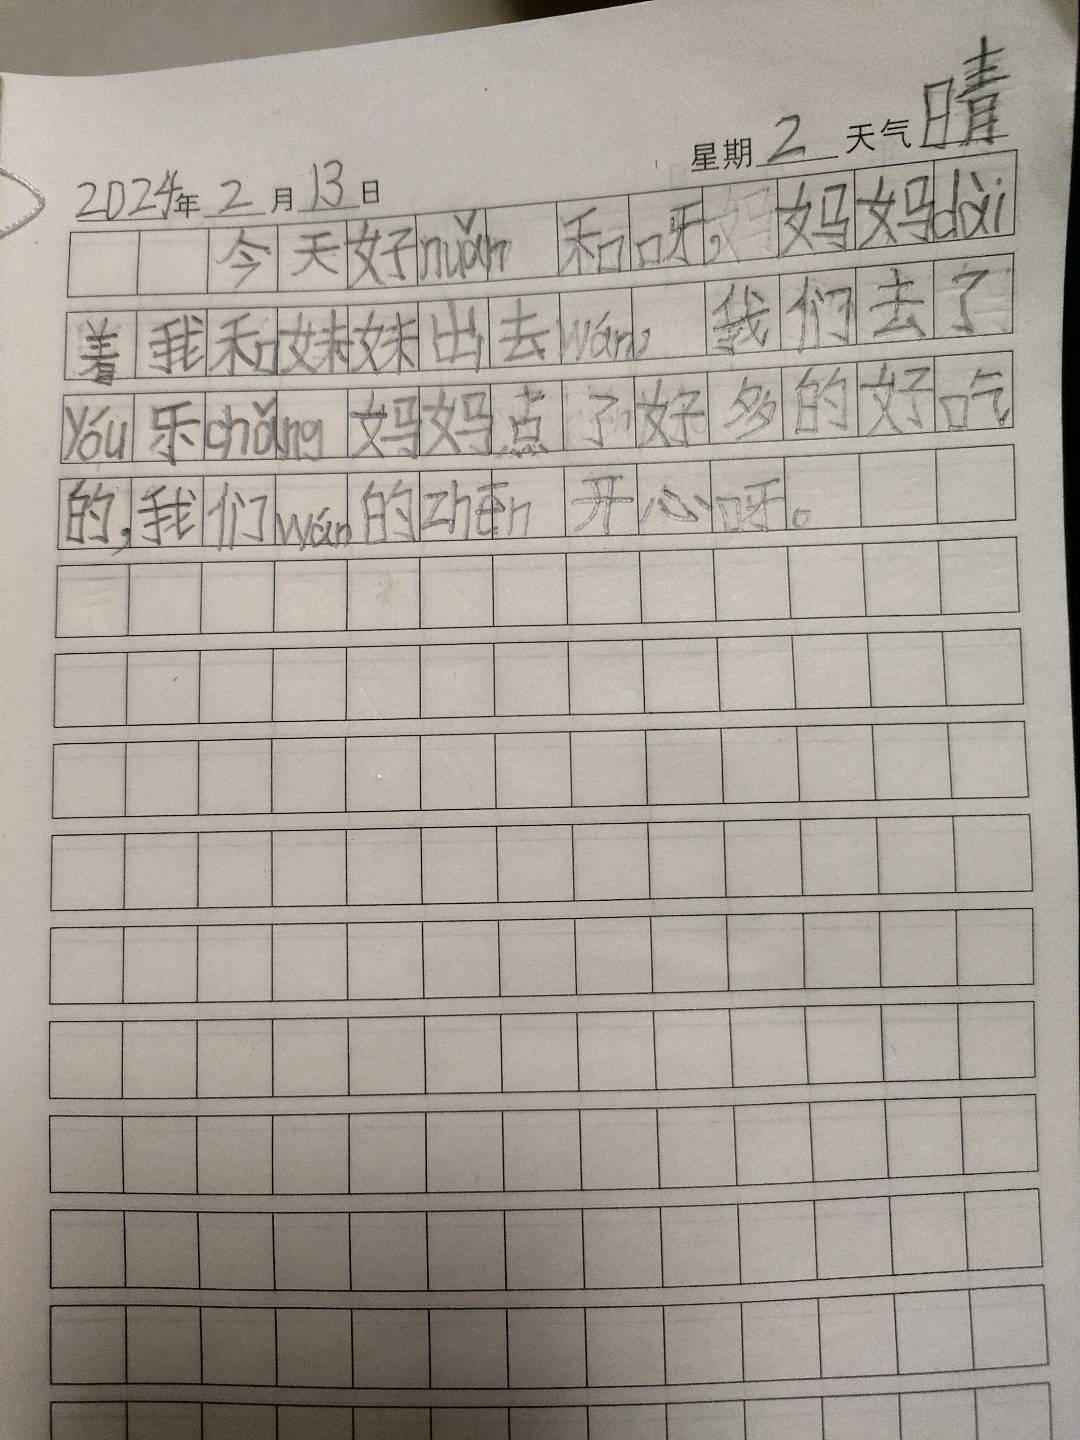 星期2天气晴
2024年2月13日
今天好nuǎn和呀,妈妈dài
着我和妹妹出去wán,我们去了
yóu乐chǎng妈妈点了好多的好吃
的,我们wán的zhēn开心呀。